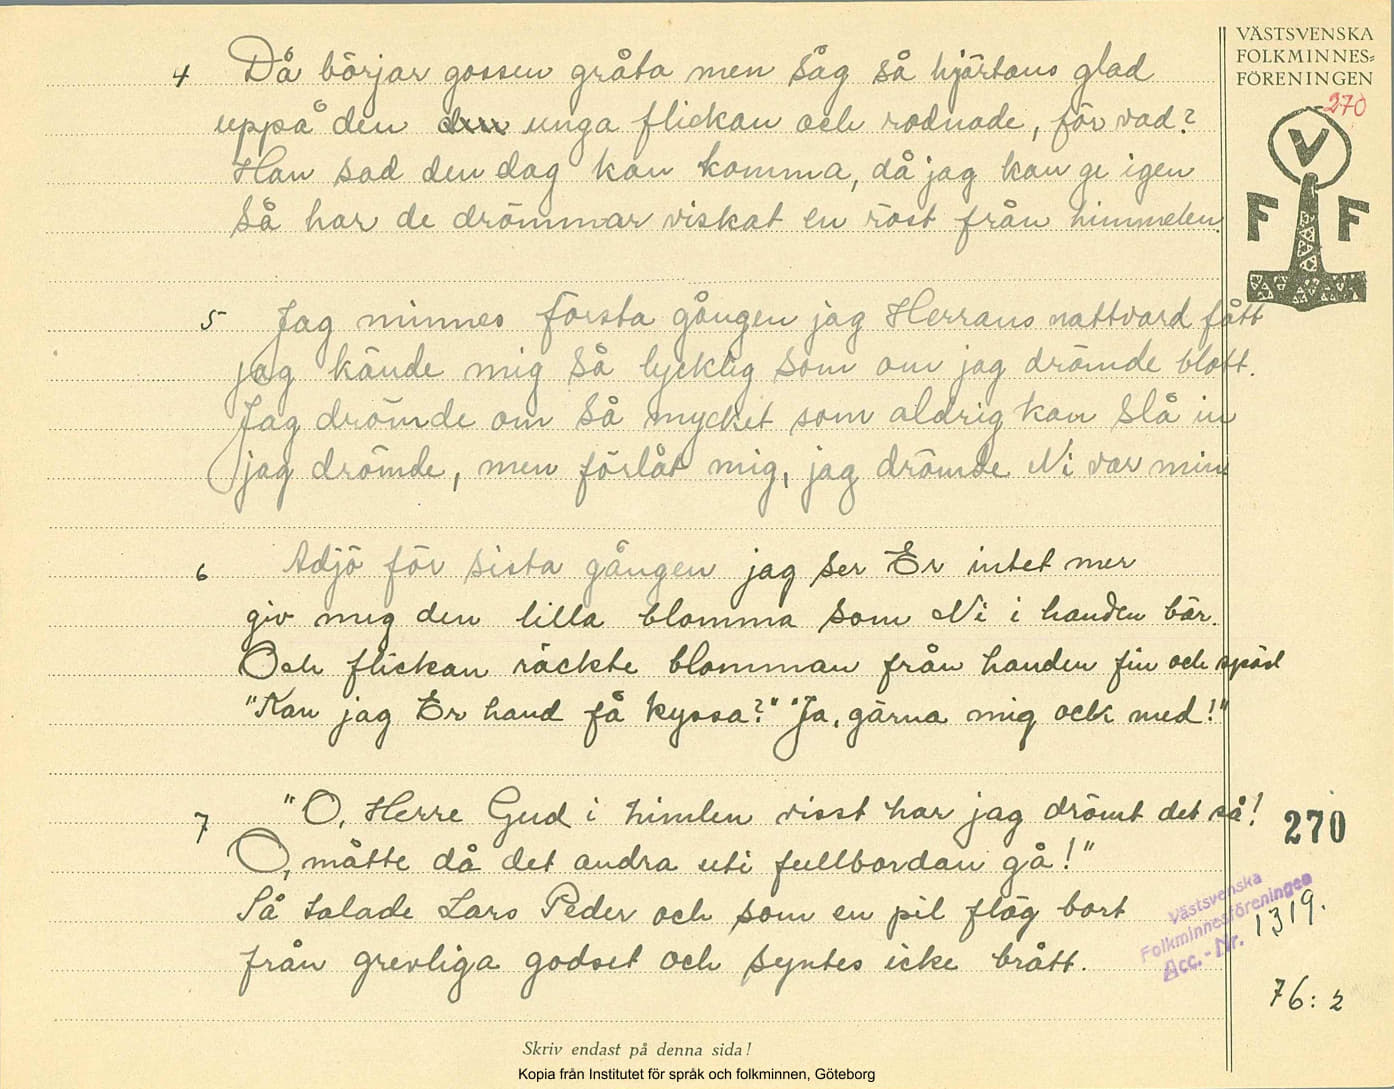 VÄSTSVENSKA
FOLKMINNES=
FÖRENINGEN
270
V
F F
4 Då börjar gossen gråta men såg så hjärtans glad
uppå den unga flickan och rodnade, för vad?
Han sad den dag kan komma, då jag kan ge igen
Så har de drömmar viskat en röst från himmelen.
5 Jag minnes första gången jag Herrans nattvard fått
jag kände mig så lycklig som om jag drömde blott.
Jag drömde om så mycket som aldrig kan slå in
jag drömde, men förlåt mig, jag drömde Ni var min
6 Adjö för sista gången jag ser Er intet mer
giv mig den lilla blomma som Ni i handen bär.
Och flickan räckte blomman från handen fin och späd
"Kan jag Er hand få kyssa?" "Ja, gärna mig ock med!"
7 "O, Herre Gud i himlen visst har jag drömt det så!
O, måtte då det andra uti fullbordan gå!"
Så talade Lars Peder och som en pil flög bort
från grevliga godset och syntes icke brått.
270
Västsvenska
Folkminnesföreningen
Acc.-Nr. 1319.
76:2
Skriv endast på denna sida!
Kopia från Institutet för språk och folkminnen, Göteborg